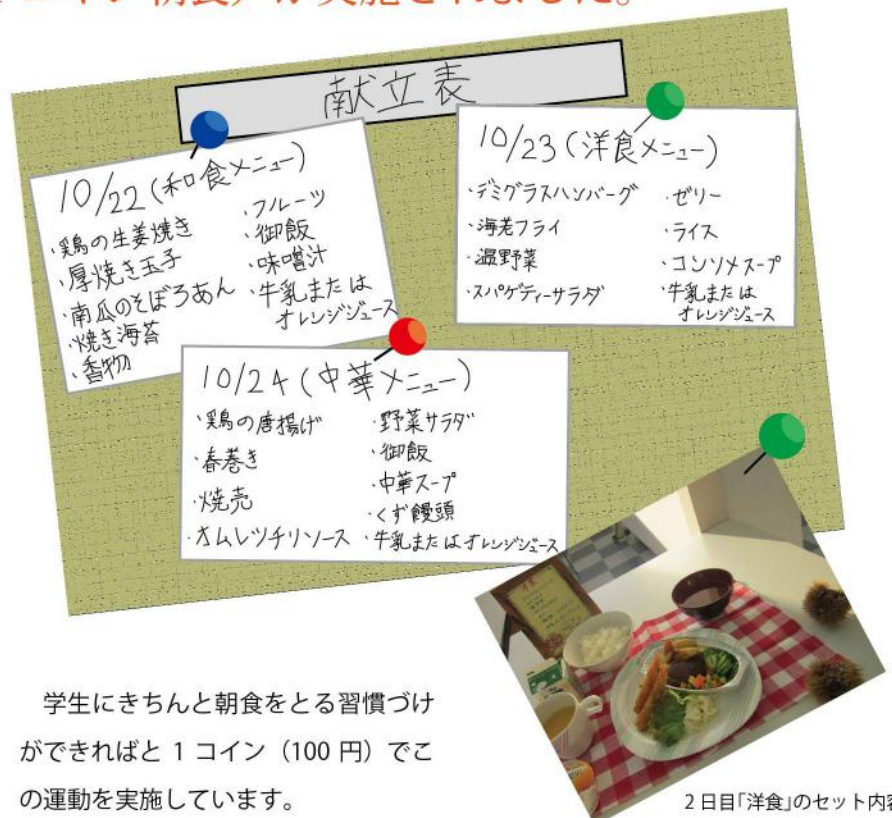 コイン朝食)が実施されました。
献立表
10/22(和食メニュー)
・鶏の生姜焼き
・厚焼き玉子
・南瓜のそぼろあん
・焼き海苔
・香物
・フルーツ
・御飯
・味噌汁
・牛乳または
オレンジジュース
10/23(洋食メニュー)
・デミグラスハンバーグ
・海老フライ
・温野菜
・スパゲティーサラダ
・ゼリー
・ライス
・コンソメスープ
・牛乳または
オレンジジュース
10/24(中華メニュー)
・鶏の唐揚げ
・春巻き
・焼売
・オムレツチリソース
・野菜サラダ
・御飯
・中華スープ
・くず饅頭
・牛乳またはオレンジジュース
学生にきちんと朝食をとる習慣づけ
ができればと 1 コイン(100 円)でこ
の運動を実施しています。
2日目「洋食」のセット内容